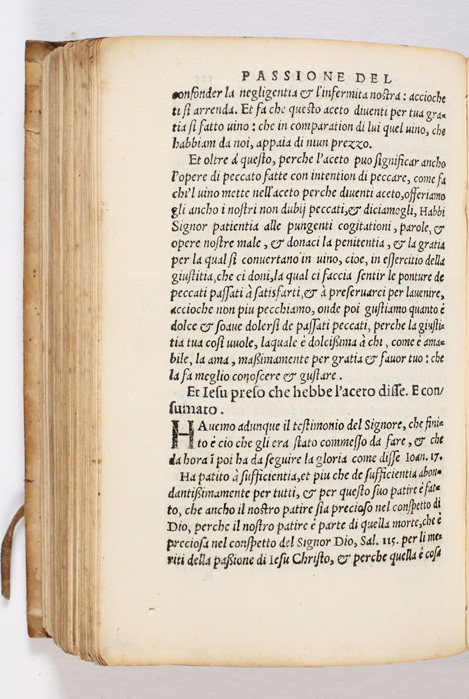 PASSIONE DEL
confonder la negligentia & l'infermita nostra: accioche
ti si arrenda. Et fa che questo aceto diuenti per tua gra-
tia si fatto uino: che in comparation di lui quel uino, che
habbiam da noi, appaia di niun prezzo.
Et oltre á questo, perche l'aceto puo significar ancho
l'opere di peccato fatte con intention di peccare, come fa
chi'l uino mette nell'aceto perche diuenti aceto, offeriamo
gli ancho i nostri non dubij peccati, & diciamogli, Habbi
Signor patientia alle pungenti cogitationi, parole, &
opere nostre male, & donaci la penitentia, & la gratia
per la qual si conuertano in uino, cioe, in essercitio della
giustitia, che ci doni, la qual ci faccia sentir le ponture de
peccati passati à satisfarti, & à preseruarci per lauenire,
accioche non piu pecchiamo, onde poi gustiamo quanto è
dolce & soaue dolersi de passati peccati, perche la giusti-
tia tua cosi uuole, laquale è dolcissima à chi, come è ama-
bile, la ama, massimamente per gratia & fauor tuo: che
la fa meglio conoscere & gustare.
Et Iesu preso che hebbe l'aceto disse. E con
sumato.
HAuemo adunque il testimonio del Signore, che fini-
to è cio che gli era stato commesso da fare, & che
da hora ĩ poi ha da seguire la gloria come disse Ioan. 17.
Ha patito à sufficientia, et piu che de sufficientia abon-
dantissimamente per tutti, & per questo suo patire è fat-
to, che ancho il nostro patire sia precioso nel conspetto di
Dio, perche il nostro patire è parte di quella morte, che è
preciosa nel conspetto del Signor Dio, Sal. 115. per li me-
riti della passione di Iesu Christo, & perche quella è cosa